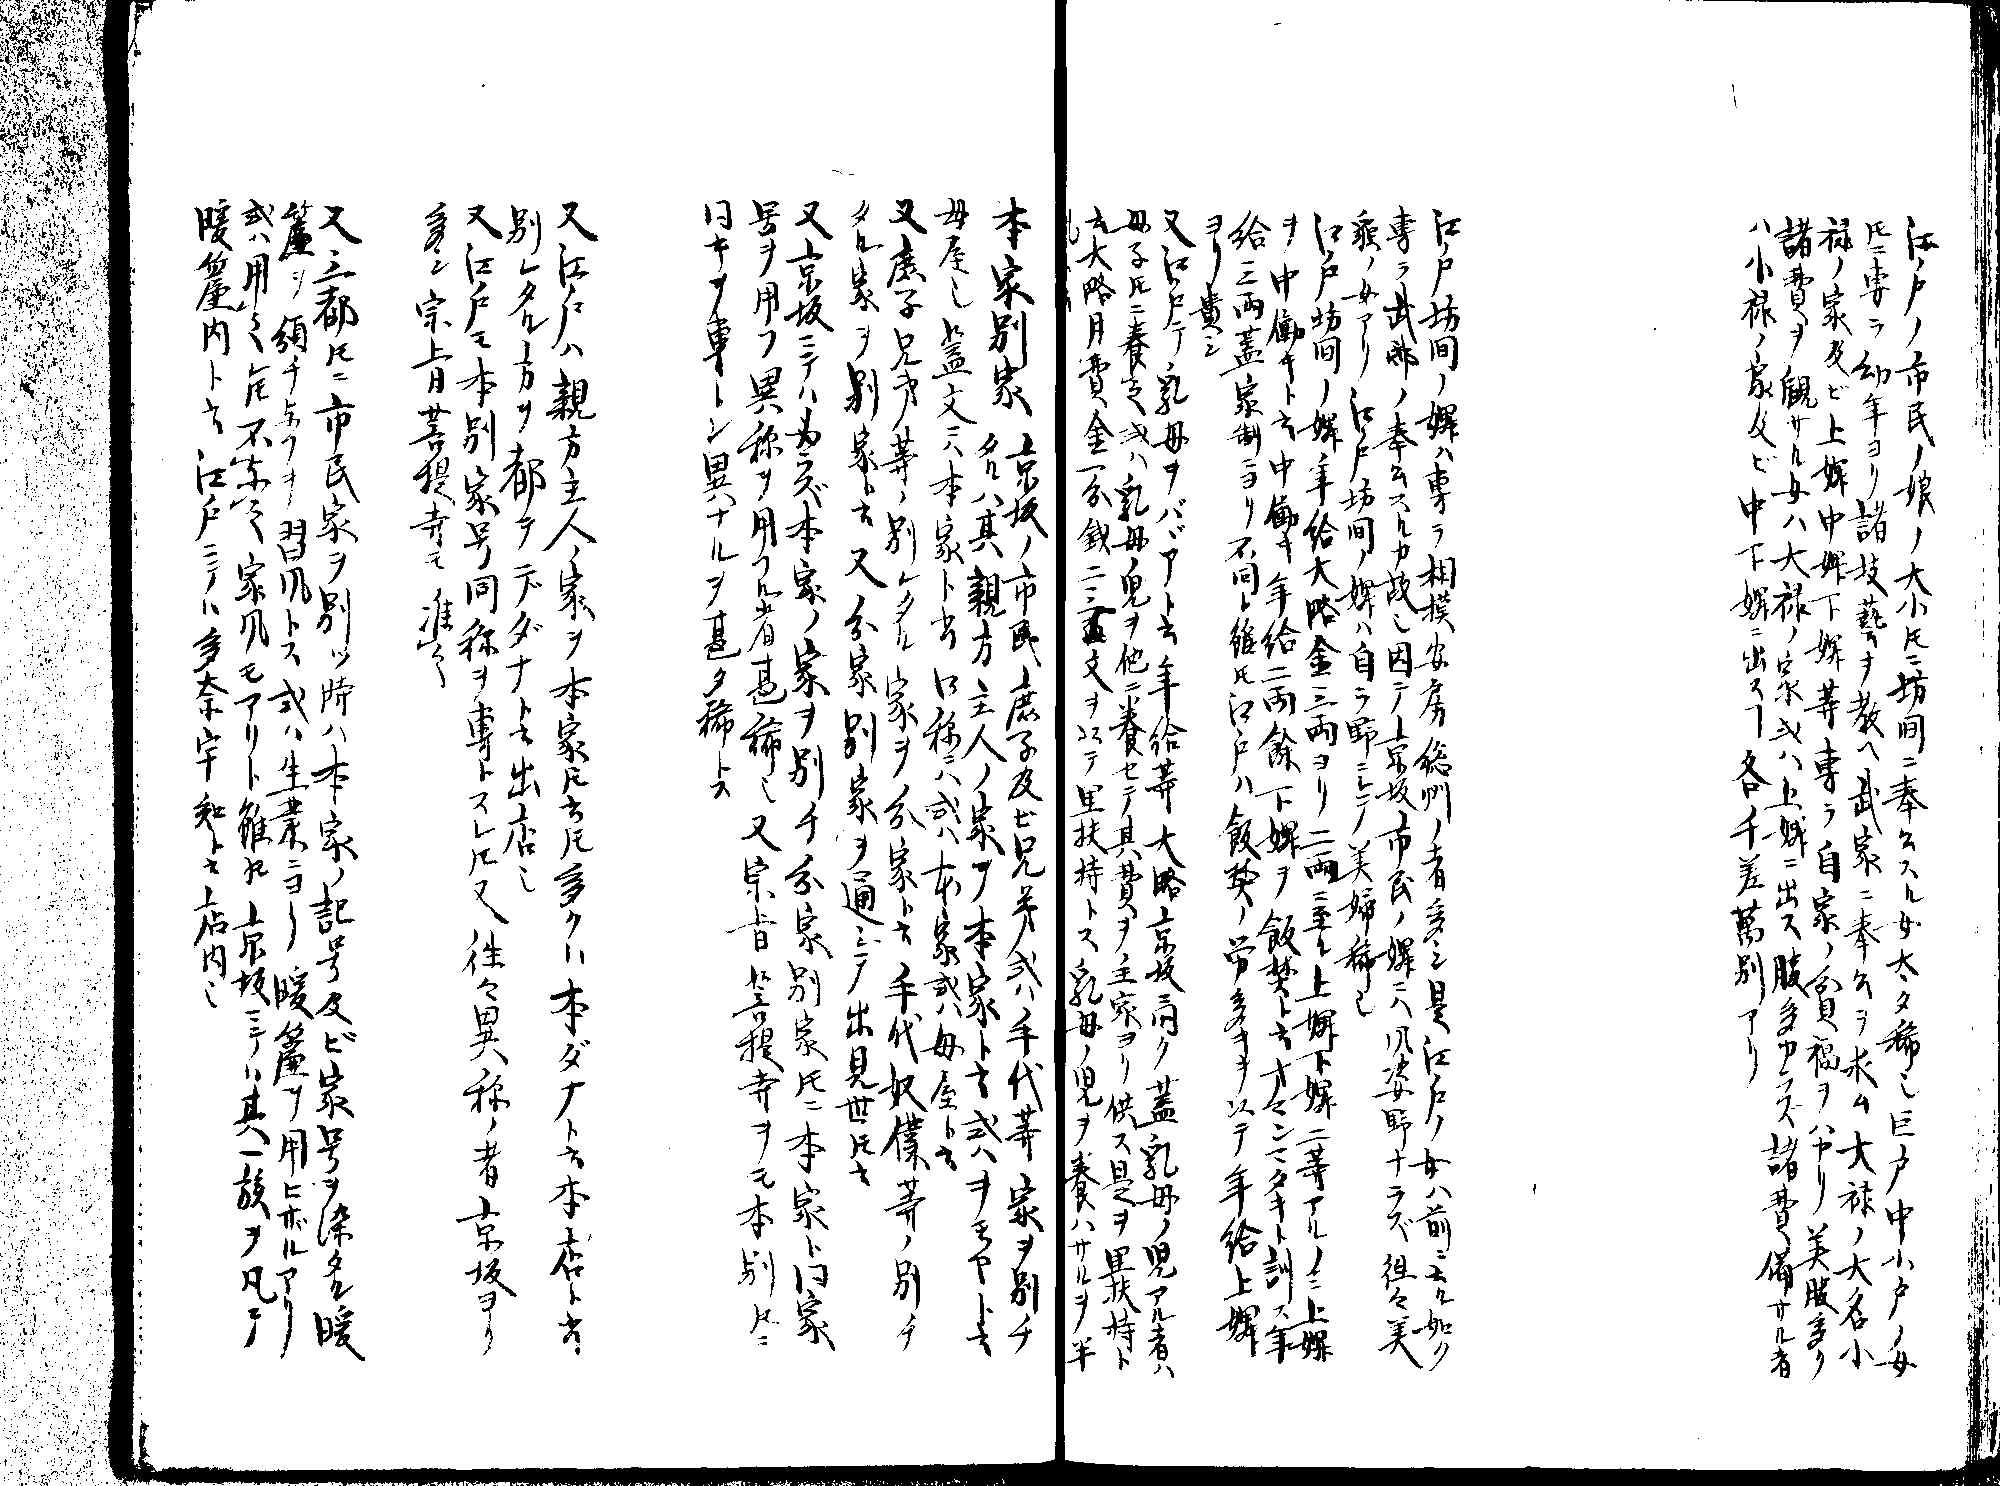 江戸ノ市民ノ娘ノ大小トモニ坊間ニ奉公スル女太タ稀也巨戸中小戸ノ女
トモニ専ラ幼年ヨリ諸技藝ヲ教ヘ武家ニ奉公ヲ求ム大禄ノ大名小
禄ノ家及ビ上婢中婢下婢等専ラ自家ノ貧福ヲハヤリ美服多ク
諸費ヲ観サル女ハ大禄ノ家或ハ上婢ニ出ス服多カラズ諸費備サル者
ハ小禄ノ家及ビ中下婢ニ出ス各千差萬別アリ
江戸坊間ノ婢ハ専ラ相模安房総州ノ者多シ是江戸ノ女ハ前ニ云如ク
専ラ武邸ノ奉公スルカ故也因テ京坂市民ノ婢ニハ風姿野ナラズ往々美
ノ女アリ江戸坊間ノ婢ハ自ラ野ニシテ美婦稀也
江戸坊間ノ婢年給大略金三両ヨリ二両ニ至ル上婢下婢二等アルノミ上婢
ヲ中働キト云中働キ年給二両餘下婢ヲ飯焚ト云マヽタキト訓ス年
給三両蓋家制ニヨリ不同ト雖トモ江戸ハ飯焚ノ労多キヲ以テ年給上婢
ヨリ貴シ
又江戸テ乳母ヲバヾアト云年給等大略京坂同ク蓋乳母ノ児アル者ハ
母子トモニ養之或ハ乳母ノ児ヲ他ニ養セテ其費ヲ主家ヨリ供ス是ヲ里扶持ト
云大略月費金一分銭二三百文ヲ以テ里扶持トス乳母ノ児ヲ養ハサルヲ半
本家別家 京坂ノ市民庶子及ビ兄弟或ハ手代等家ヲ別チ
タルハ其親方主人ノ家ヲ本家ト云或ハヲモヤト云
母屋也蓋文ニハ本家ト書口称ニハ或ハ本家或ハ母屋ト云
又庶子兄弟等ノ別レタル家ヲ分家ト云手代奴僕等ノ別チ
タル家ヲ別家ト云又分家別家ヲ通ジテ出見世トモ云
又京坂ニテハ必ラズ本家ノ家ヲ別チ分家別家トモニ本家ト同家
号ヲ用フ異称ヲ用フル者甚稀也又宗旨菩提寺ヲモ本別トモニ
同キヲ専トシ異ナルヲ甚タ稀トス
又江戸ハ親方主人ノ家ヲ本家トモ云トモ多クハ本ダナト云本店ト云
別レタル方ヲ都テデダナト云出店也
又江戸モ本別家号同称ヲ専トスレトモ又往々異称ノ者京坂ヨリ
多シ宗旨菩提寺モ准之
又三都トモニ市民家ヲ別ツ時ハ本家ノ記号及ビ家号ヲ染タル暖
簾ヲ領チ与フヲ習風トス或ハ生業ニヨリ暖簾ヲ用ヒザルアリ
或ハ用之トモ不染之家風モアリト雖トモ京坂ニテハ其一族ヲ凡テ
暖簾内ト云江戸ニテハ多奈宇知ト云店内也